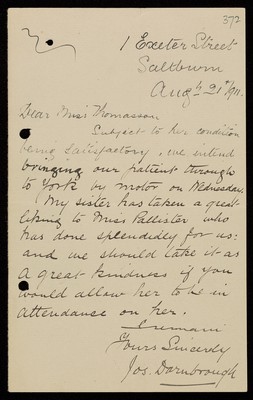 372
1 Exeter Street
Saltburn
Aug 21st/11.
Dear Miss Thomasson
Subject to her condition
being satisfactory, we intend
bringing our patient through
to York by motor on Wednesday.
My sister has taken a great
liking to Miss Pallister who
has done splendidly for us:
and we should take it as
a great kindness if you
would allow her to be in
attendance on her.
I remain
Yours Sincerely
Jos. Darnbrough